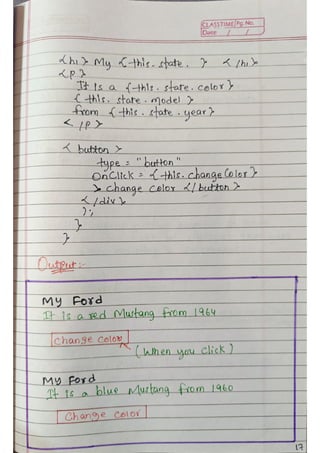 CLASSTIME Pg. No.
Date / /
<h1> My {this.state. } </h1>
<p>
It is a {this.state.color}
{this.state.model}
from {this.state.year}
</p>
< button >
type = "button"
OnClick = {this.changeColor}
> change color </button>
</div>
);
}
}
Output:-
My Ford
It is a red Mustang from 1964
change color
(When you click)
My Ford
It is a blue Mustang from 1960
Change color
17